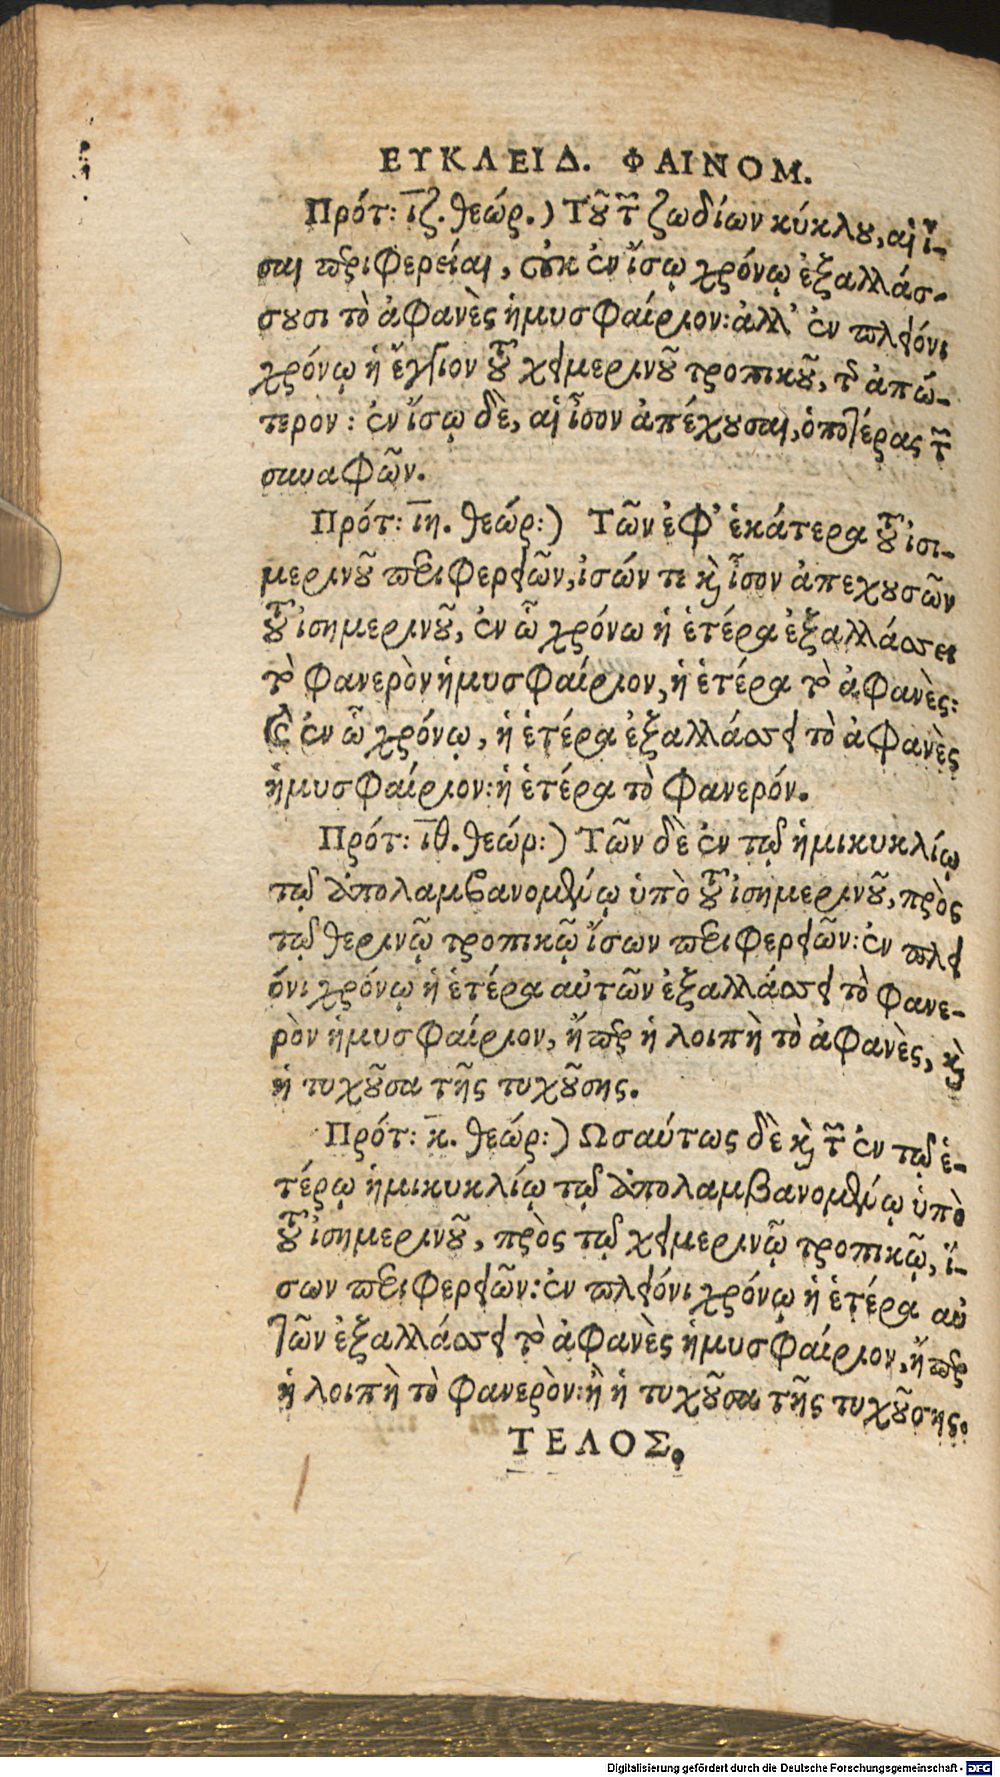 ΕΥΚΛΕΙΔ. ΦΑΙΝΟΜ.
Πρότ: ιζ. θεώρ.) Τοῦ τῶν ζωδίων κύκλου, αἱ ἴ-
σαι περιφερείαι, οὐκ ἐν ἴσῳ χρόνῳ ἐξαλλάσ-
σουσι τὸ ἀφανὲς ἡμυσφαίριον: ἀλλ' ἐν πλείονι
χρόνῳ ἡ ἔγγιον τοῦ χειμερινοῦ τροπικοῦ, τῆς ἀπώ-
τερον: ἐν ἴσῳ δὲ, αἱ ἶσον ἀπέχουσαι, ὁποτέρας τῶν
συναφῶν.
Πρότ: ιη. θεώρ:) Τῶν ἐφ' ἑκάτερα τοῦ ἰσι-
μερινοῦ περιφερειῶν, ἰσών τε καὶ ἶσον ἀπεχουσῶν
τοῦ ἰσημερινοῦ, ἐν ᾧ χρόνω ἡ ἑτέρα ἐξαλλάσσει
τὸ φανερὸν ἡμυσφαίριον, ἡ ἑτέρα τὸ ἀφανὲς:
καὶ ἐν ᾧ χρόνῳ, ἡ ἑτέρα ἐξαλλάσσει τὸ ἀφανὲς
ἡμυσφαίριον: ἡ ἑτέρα τὸ φανερόν.
Πρότ: ιθ. θεώρ:) Τῶν δὲ ἐν τῷ ἡμικυκλίῳ
τῷ ἀπολαμβανομένῳ ὑπὸ τοῦ ἰσημερινοῦ, πρὸς
τῷ θερινῷ τροπικῷ ἴσων περιφερειῶν: ἐν πλεί
όνι χρόνῳ ἡ ἑτέρα αὐτῶν ἐξαλλάσσει τὸ φανε-
ρὸν ἡμυσφαίριον, ἤπερ ἡ λοιπὴ τὸ ἀφανὲς, καὶ
ἡ τυχοῦσα τῆς τυχούσης.
Πρότ: κ. θεώρ:) Ωσαύτως δὲ καὶ τῶν ἐν τῷ ἑ-
τέρῳ ἡμικυκλίῳ τῷ ἀπολαμβανομένῳ ὑπὸ
τοῦ ἰσημερινοῦ, πρὸς τῷ χειμερινῷ τροπικῷ, ἴ-
σων περιφερειῶν: ἐν πλείονι χρόνῳ ἡ ἑτέρα αὐ
τῶν ἐξαλλάσσει τὸ ἀφανὲς ἡμυσφαίριον, ἤπερ
ἡ λοιπὴ τὸ φανερὸν: ἢ ἡ τυχοῦσα τῆς τυχούσης.
ΤΕΛΟΣ.
Digitalisierung gefördert durch die Deutsche Forschungsgemeinschaft - DFG